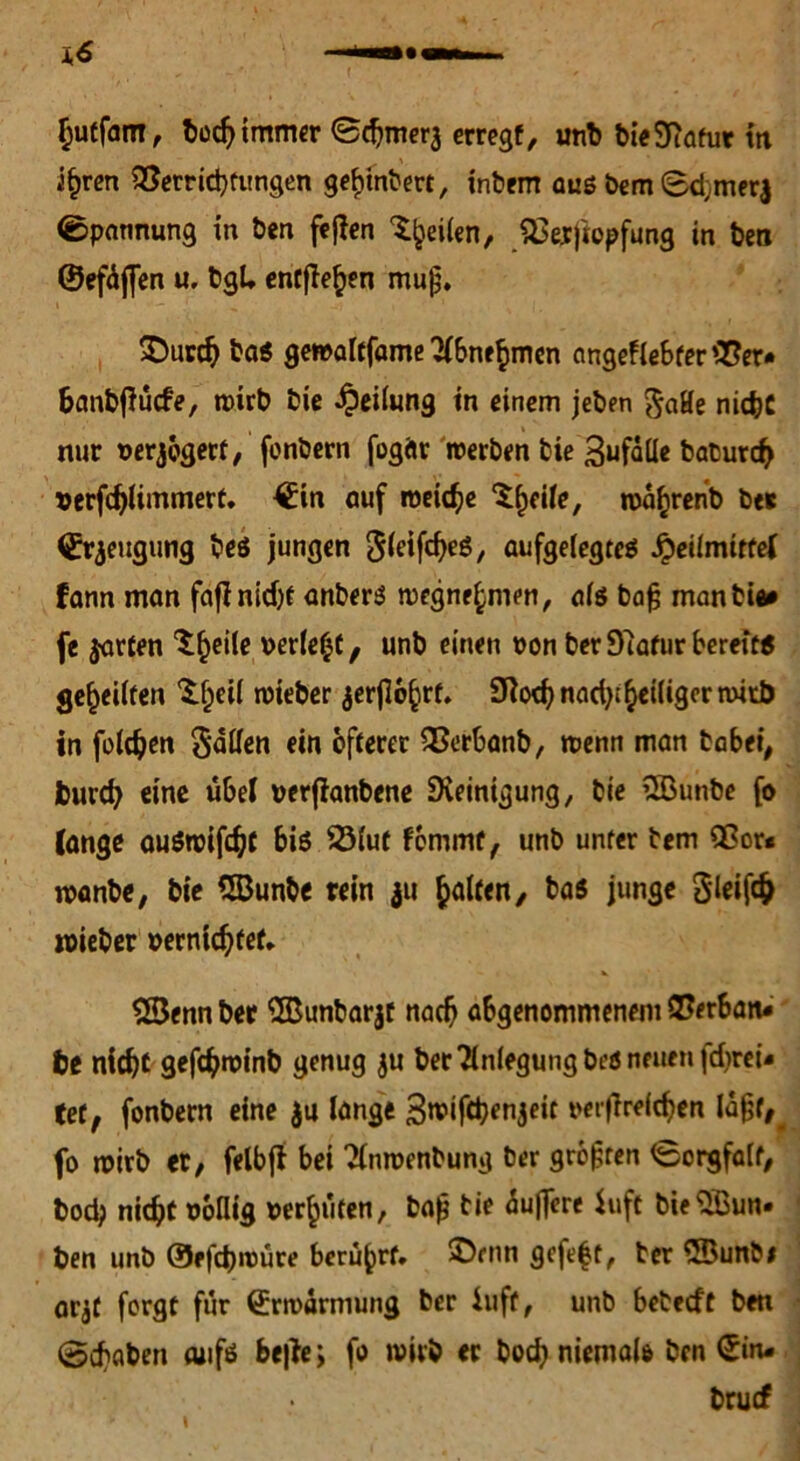 16
hutsam, doch immer Schmerz erregt, und die Natur in
ihren Verrichtungen gehindert, indem aus dem Schmerz
Spannung in den festen Theilen, Verstopfung in den
Gefäßen u. dgl. entstehen muß.
Durch das gewaltsame Abnehmen angeklebter Ver-
bandstücke, wird die Heilung in einem jeden Falle nicht
nur verzögert, sondern sogar werden die Zufälle dadurch
verschlimmert. Ein auf weiche Theile, während der
Erzeugung des jungen Fleisches, aufgelegtes Heilmittel
kann man fast nicht anders wegnehmen, als daß man die-
se zarten Theile verletzt, und einen von der Natur bereits
geheilten Theil wieder zerstöhrt. Noch nachtheiliger wird
in solchen Fällen ein öfterer Verband, wenn man dabei,
durch eine übel verstandene Reinigung, die Wunde so
lange auswischt bis Blut kommt, und unter dem Vor-
wande, die Wunde rein zu halten, das junge Fleisch
wieder vernichtet.
Wenn der Wundarzt nach abgenommenem Verban-
de nicht geschwind genug zu der Anlegung des neuen schrei-
tet, sondern eine zu lange Zwischenzeit verstreichen läßt,
so wird er, selbst bei Anwendung der größten Sorgfalt,
doch nicht völlig verhüten, daß die äussere Luft die Wun-
den und Geschwüre berührt. Denn gesetzt, der Wund-
arzt sorgt für Erwärmung der Luft, und bedeckt den
Schaden aufs beste; so wird er doch niemals den Ein-
druck